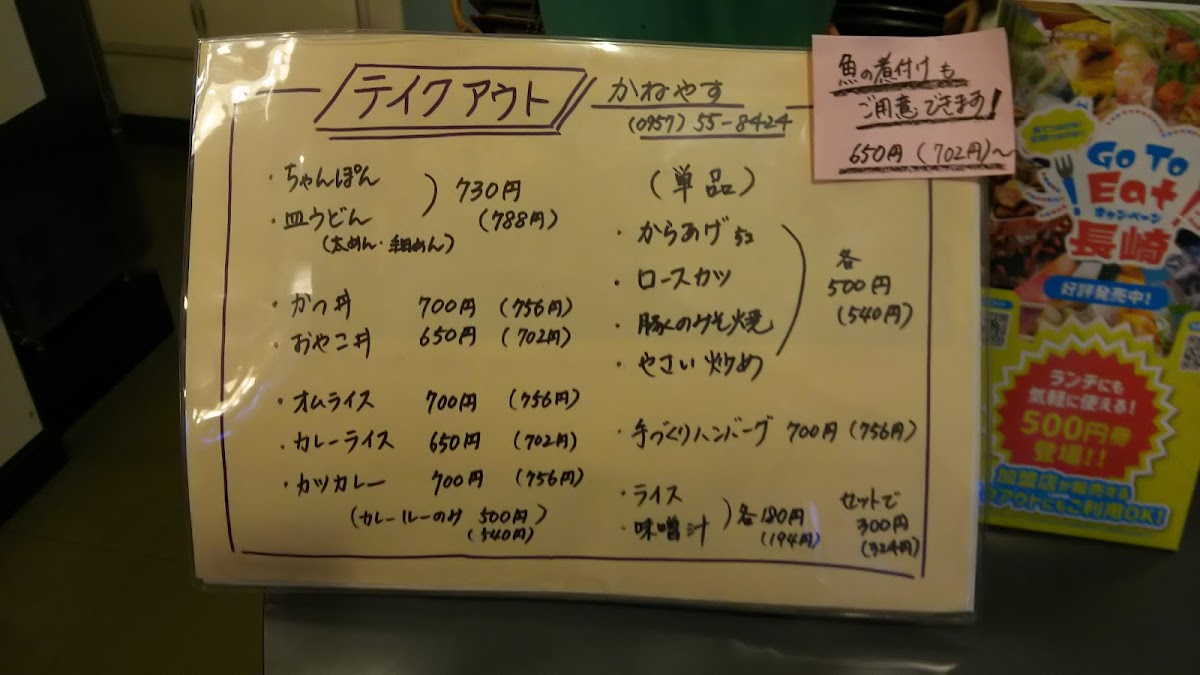 テイクアウト
かねやす
(0957) 55-8424
魚の煮付けも
ご用意できます!
650円 (702円)~
・ちゃんぽん
・皿うどん
(太めん・細めん)
730円
(788円)
・かつ丼 700円 (756円)
・おやこ丼 650円 (702円)
・オムライス 700円 (756円)
・カレーライス 650円 (702円)
・カツカレー 700円 (756円)
(カレールーのみ 500円)
(540円)
(単品)
・からあげ 5コ
・ロースカツ
・豚のみそ焼
・やさい炒め
各
500円
(540円)
・手づくりハンバーグ 700円 (756円)
・ライス
・味噌汁
各180円
(194円)
セットで
300円
(324円)
GO TO
Eat!
キャンペーン
長崎
好評発売中!
ランチにも
気軽に使える!
500円券
登場!!
加盟店が販売する
クアウトにもご利用OK!